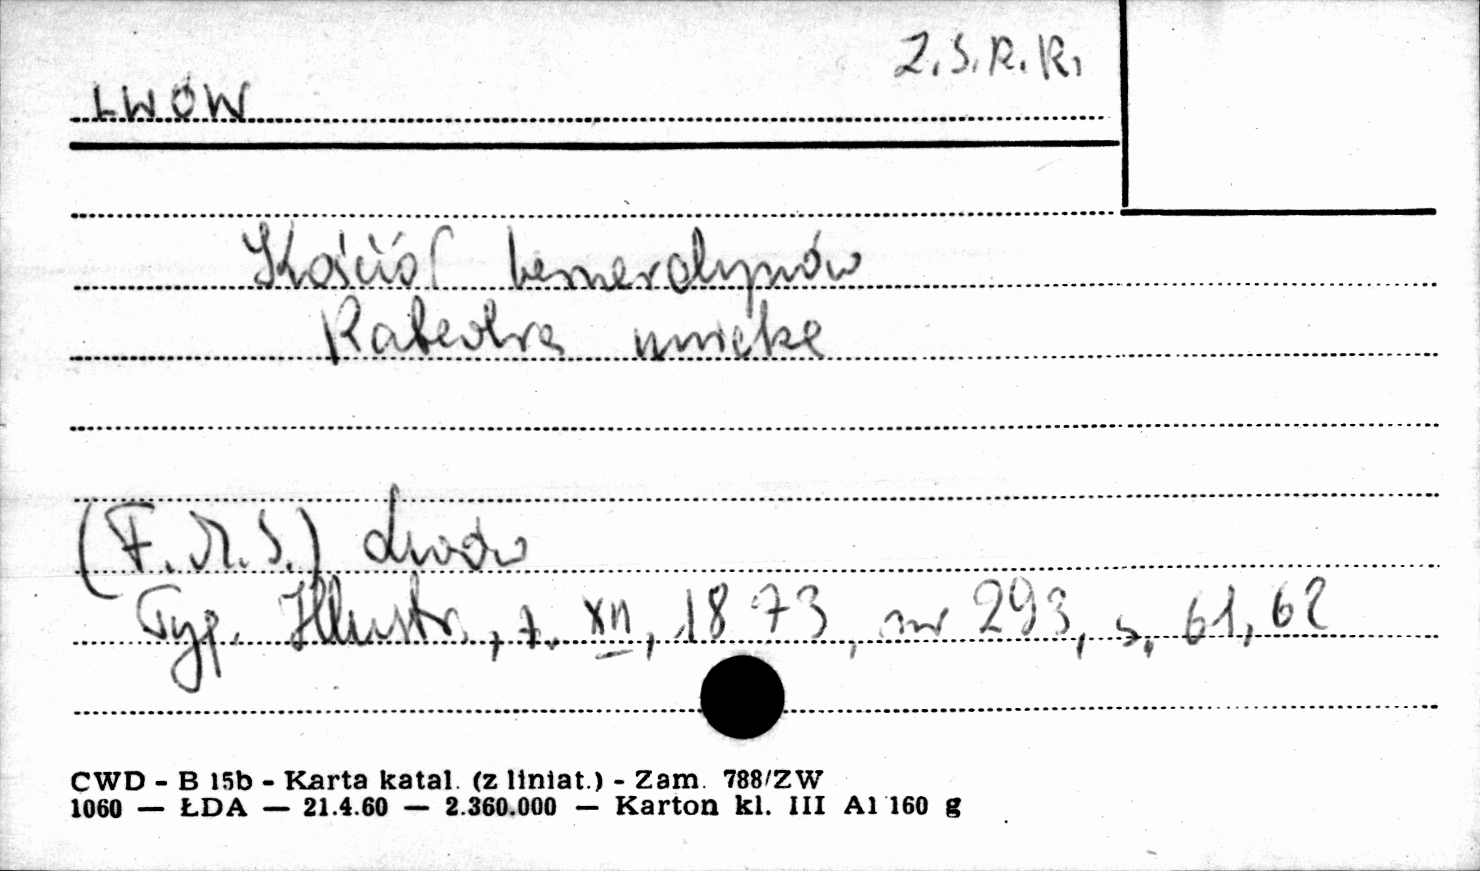 Z.S.R.R.
LWÓW
Kościół bernardynów
Katedra unicka
(F.M.S.) Lwów
Tyg. Illustr., t. XII, 1873, nr 293, s. 61, 62
CWD - B 15b - Karta katal. (z liniat.) - Zam. 788/ZW
1060 — ŁDA — 21.4.60 — 2.360.000 — Karton kl. III A1 160 g